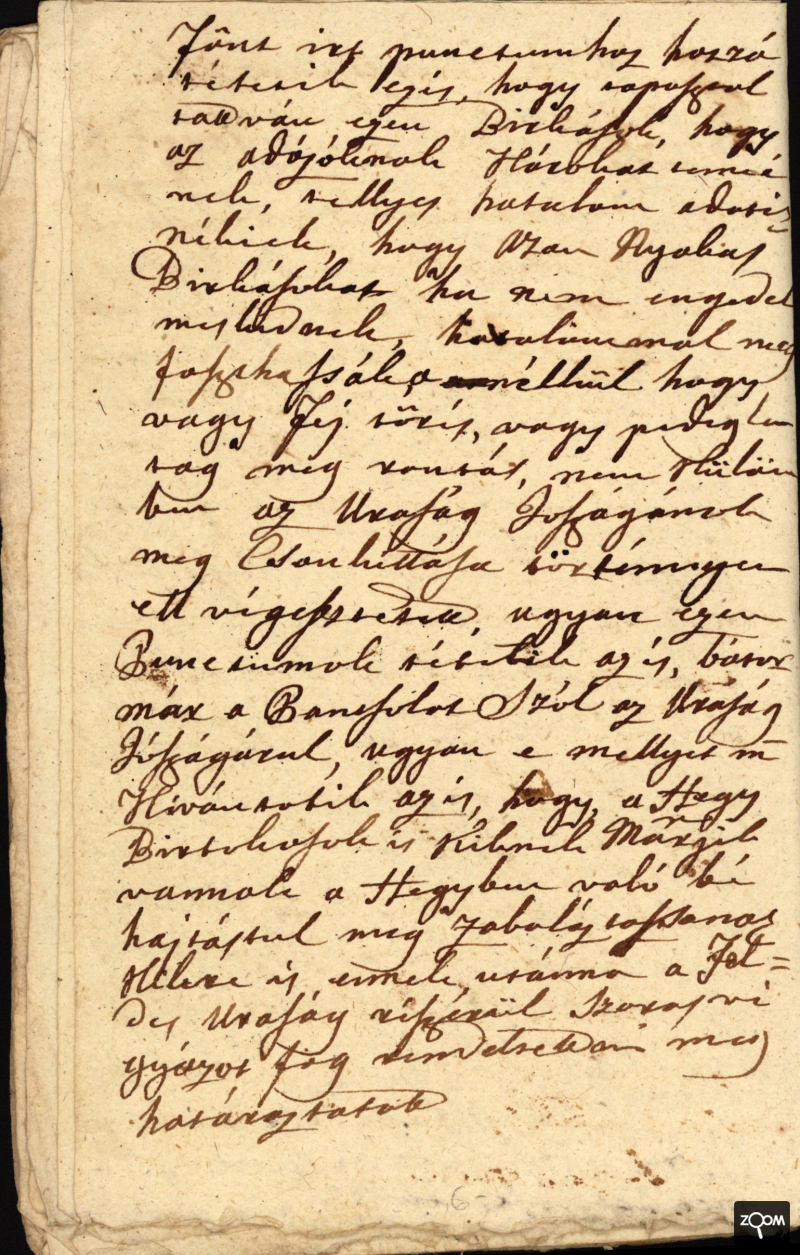 Fönt irt punctumhoz hozzá
tétetik ez is, hogy tapasztal
tatván ezen Birkások, hogy
az adójóknak Károkat tenné
nek, tellyes hatalom adatik
nékiek, hogy azon Nyakas
Birkásokat ha nem engedel
meskednek, hatalommal meg
foszthassák, a nélkül hogy
vagy Fej törés, vagy pedig
tag meg rontás, nem Külöm
ben az Uraság Joszágának
meg Csonkittása törtennyen
ett végeztetik, ugyan ezen
Punctumok tétetik az is, bátor
már a Pancsolat Szól az Uraság
Jószágárul, ugyan e mellyet
Kivántatik az is, hogy a Hegy
Birtokosok is Kiknek Marjik
vannak a Hegyben való bé
hajtástul meg zabolásztassanak
Kikre is ennek utánna a Föl=
des Uraság részérül Szoros vi
gyázat fog rendeltetni meg
határoztatott
6
ZOOM